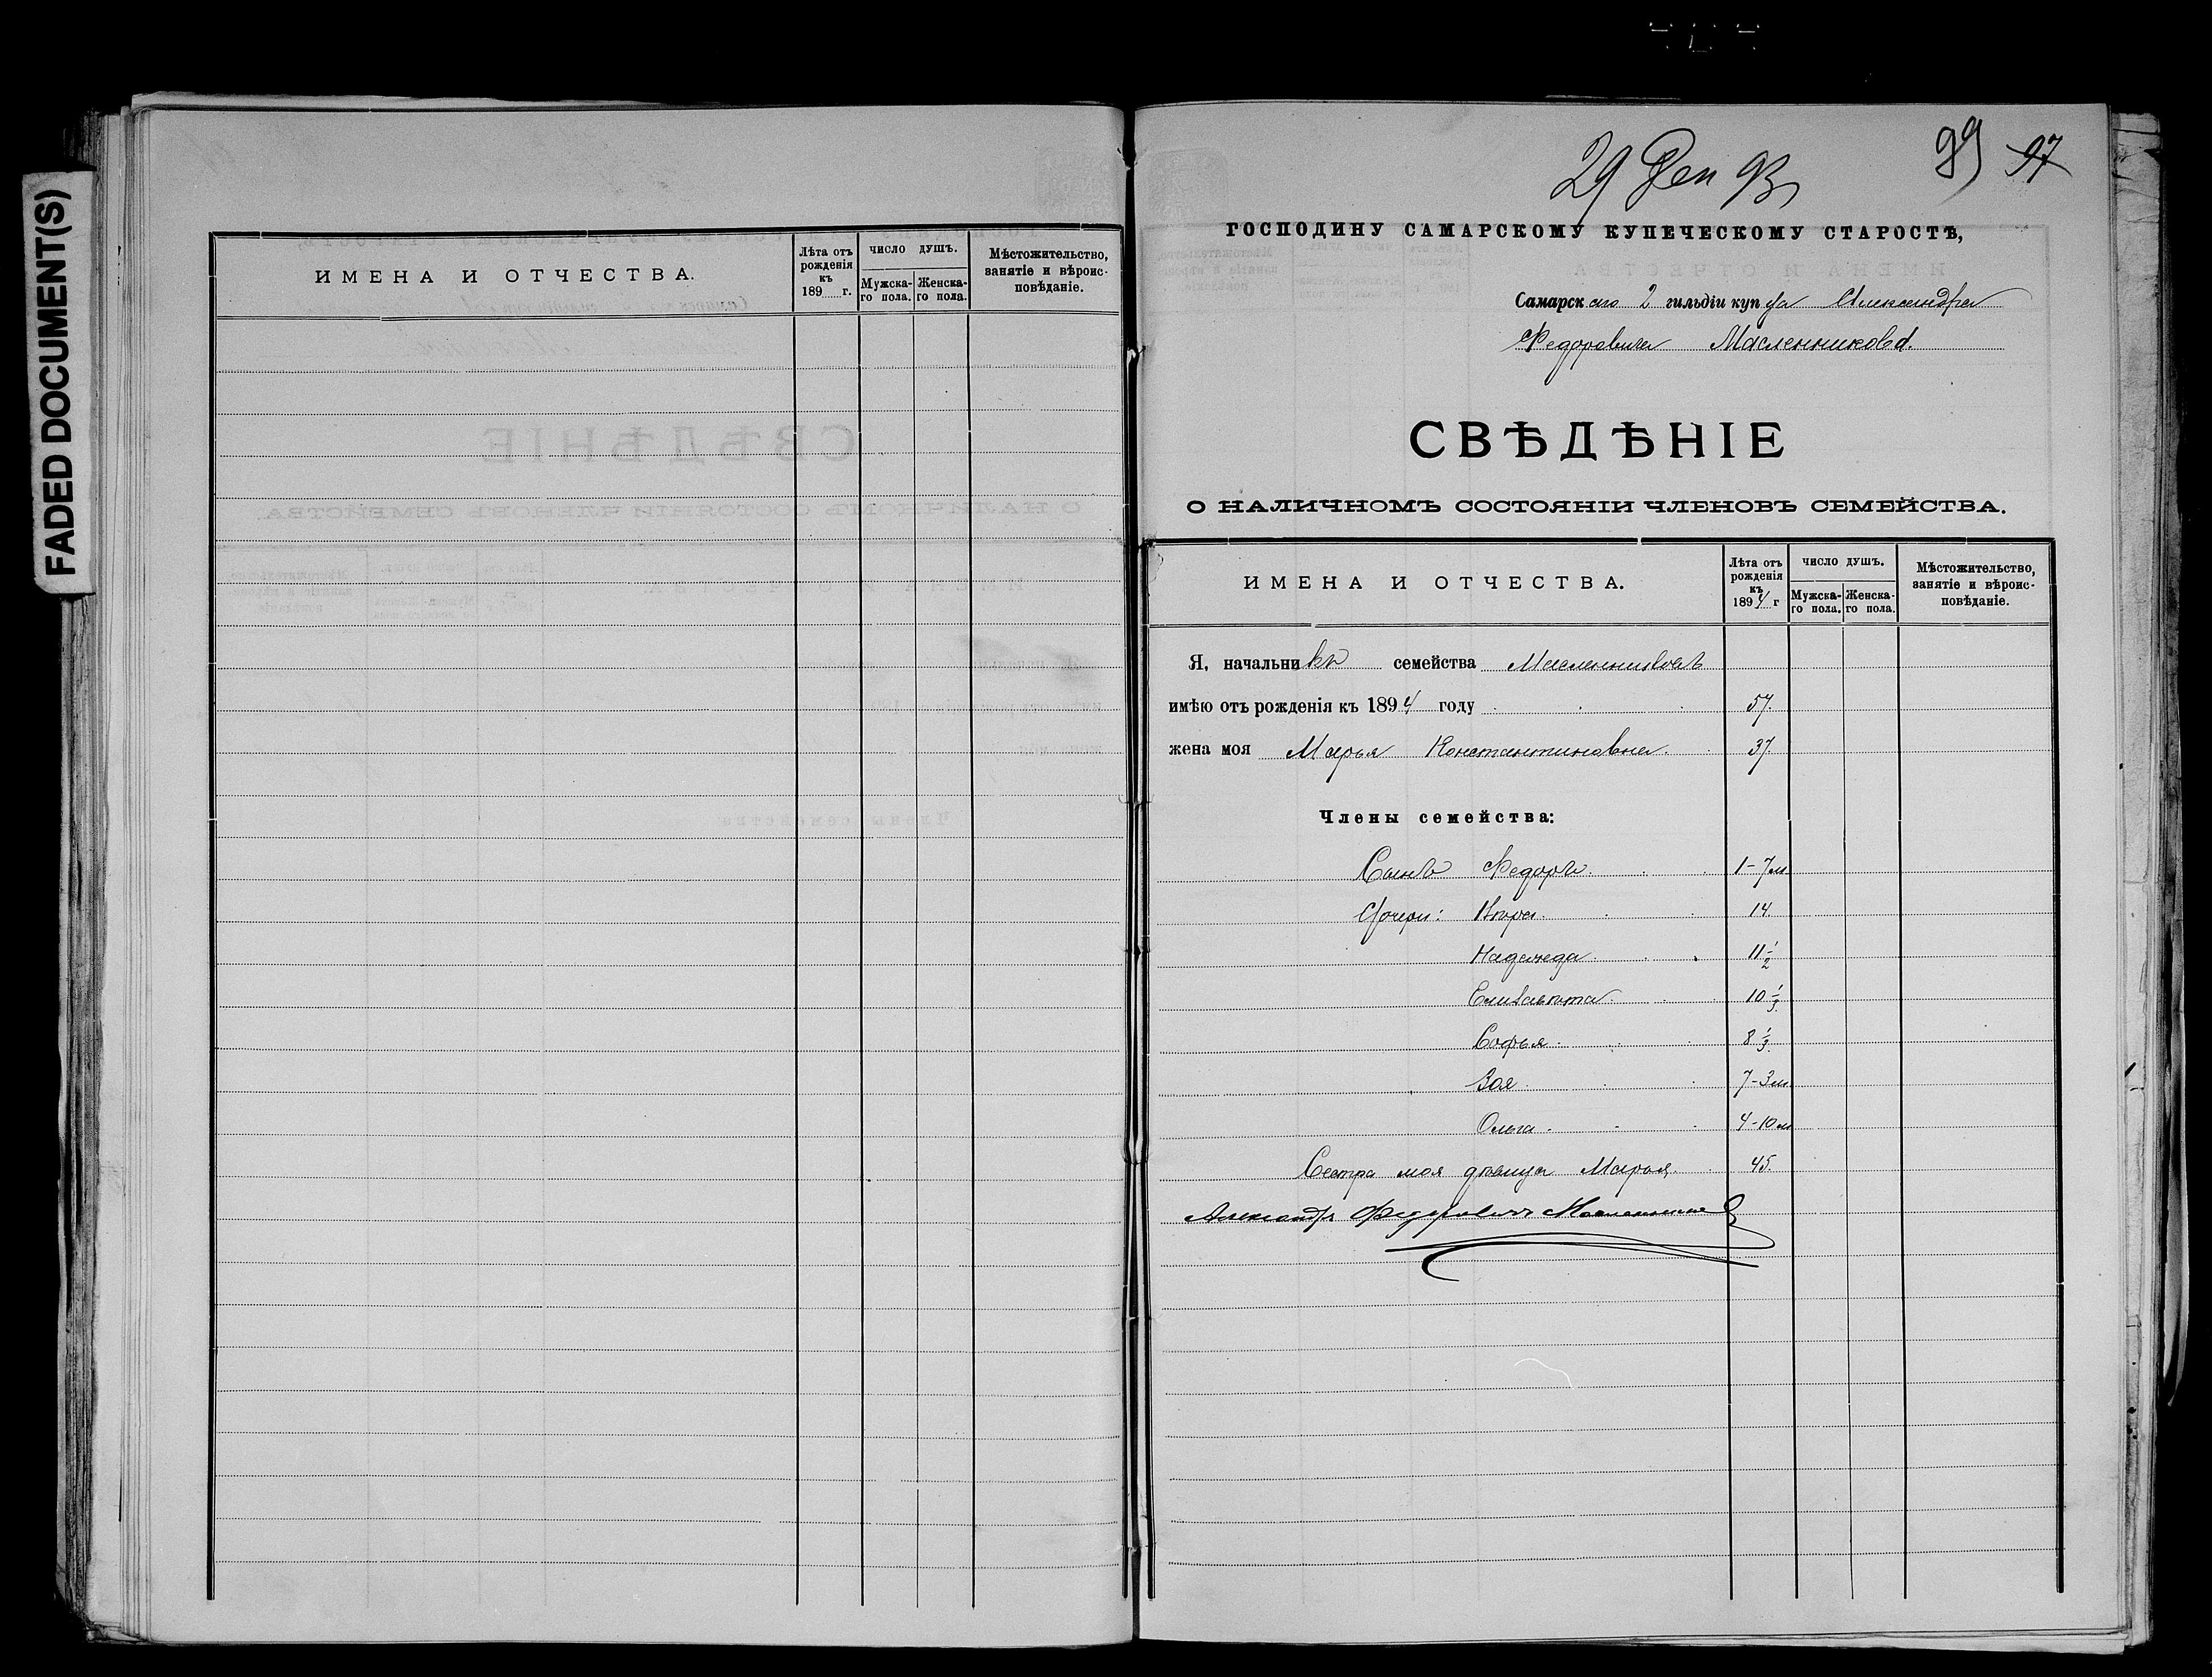 FADED DOCUMENT(S)
ИМЕНА И ОТЧЕСТВА.
Лѣта отъ рожденія къ 189 г.
ЧИСЛО ДУШЪ.
Мужска-го пола.
Женска-го пола.
Мѣстожительство, занятіе и вѣроис-повѣданіе.
29 Дек 93
99 97
ГОСПОДИНУ САМАРСКОМУ КУПЕЧЕСКОМУ СТАРОСТѢ,
Самарскаго 2 гильдіи купца Александра
Федоровича Масленникова.
СВѢДѢНІЕ
О НАЛИЧНОМЪ СОСТОЯНІИ ЧЛЕНОВЪ СЕМЕЙСТВА.
ИМЕНА И ОТЧЕСТВА.
Лѣта отъ рожденія къ 1894 г
ЧИСЛО ДУШЪ.
Мужска-го пола.
Женска-го пола.
Мѣстожительство, занятіе и вѣроис-повѣданіе.
Я, начальникъ семейства Масленниковъ
имѣю отъ рожденія къ 1894 году 57.
жена моя Марья Константиновна. 37.
Члены семейства:
Сынъ Федоръ. 1-7м
Дочери: Вѣра. 14.
Надежда. 11 1/2
Елизавѣта. 10 1/3.
Софья. 8 1/3.
Зоя 7-3м
Ольга. 4-10м
Сестра моя дѣвица Марья. 45.
Александръ Федоровичъ Масленников